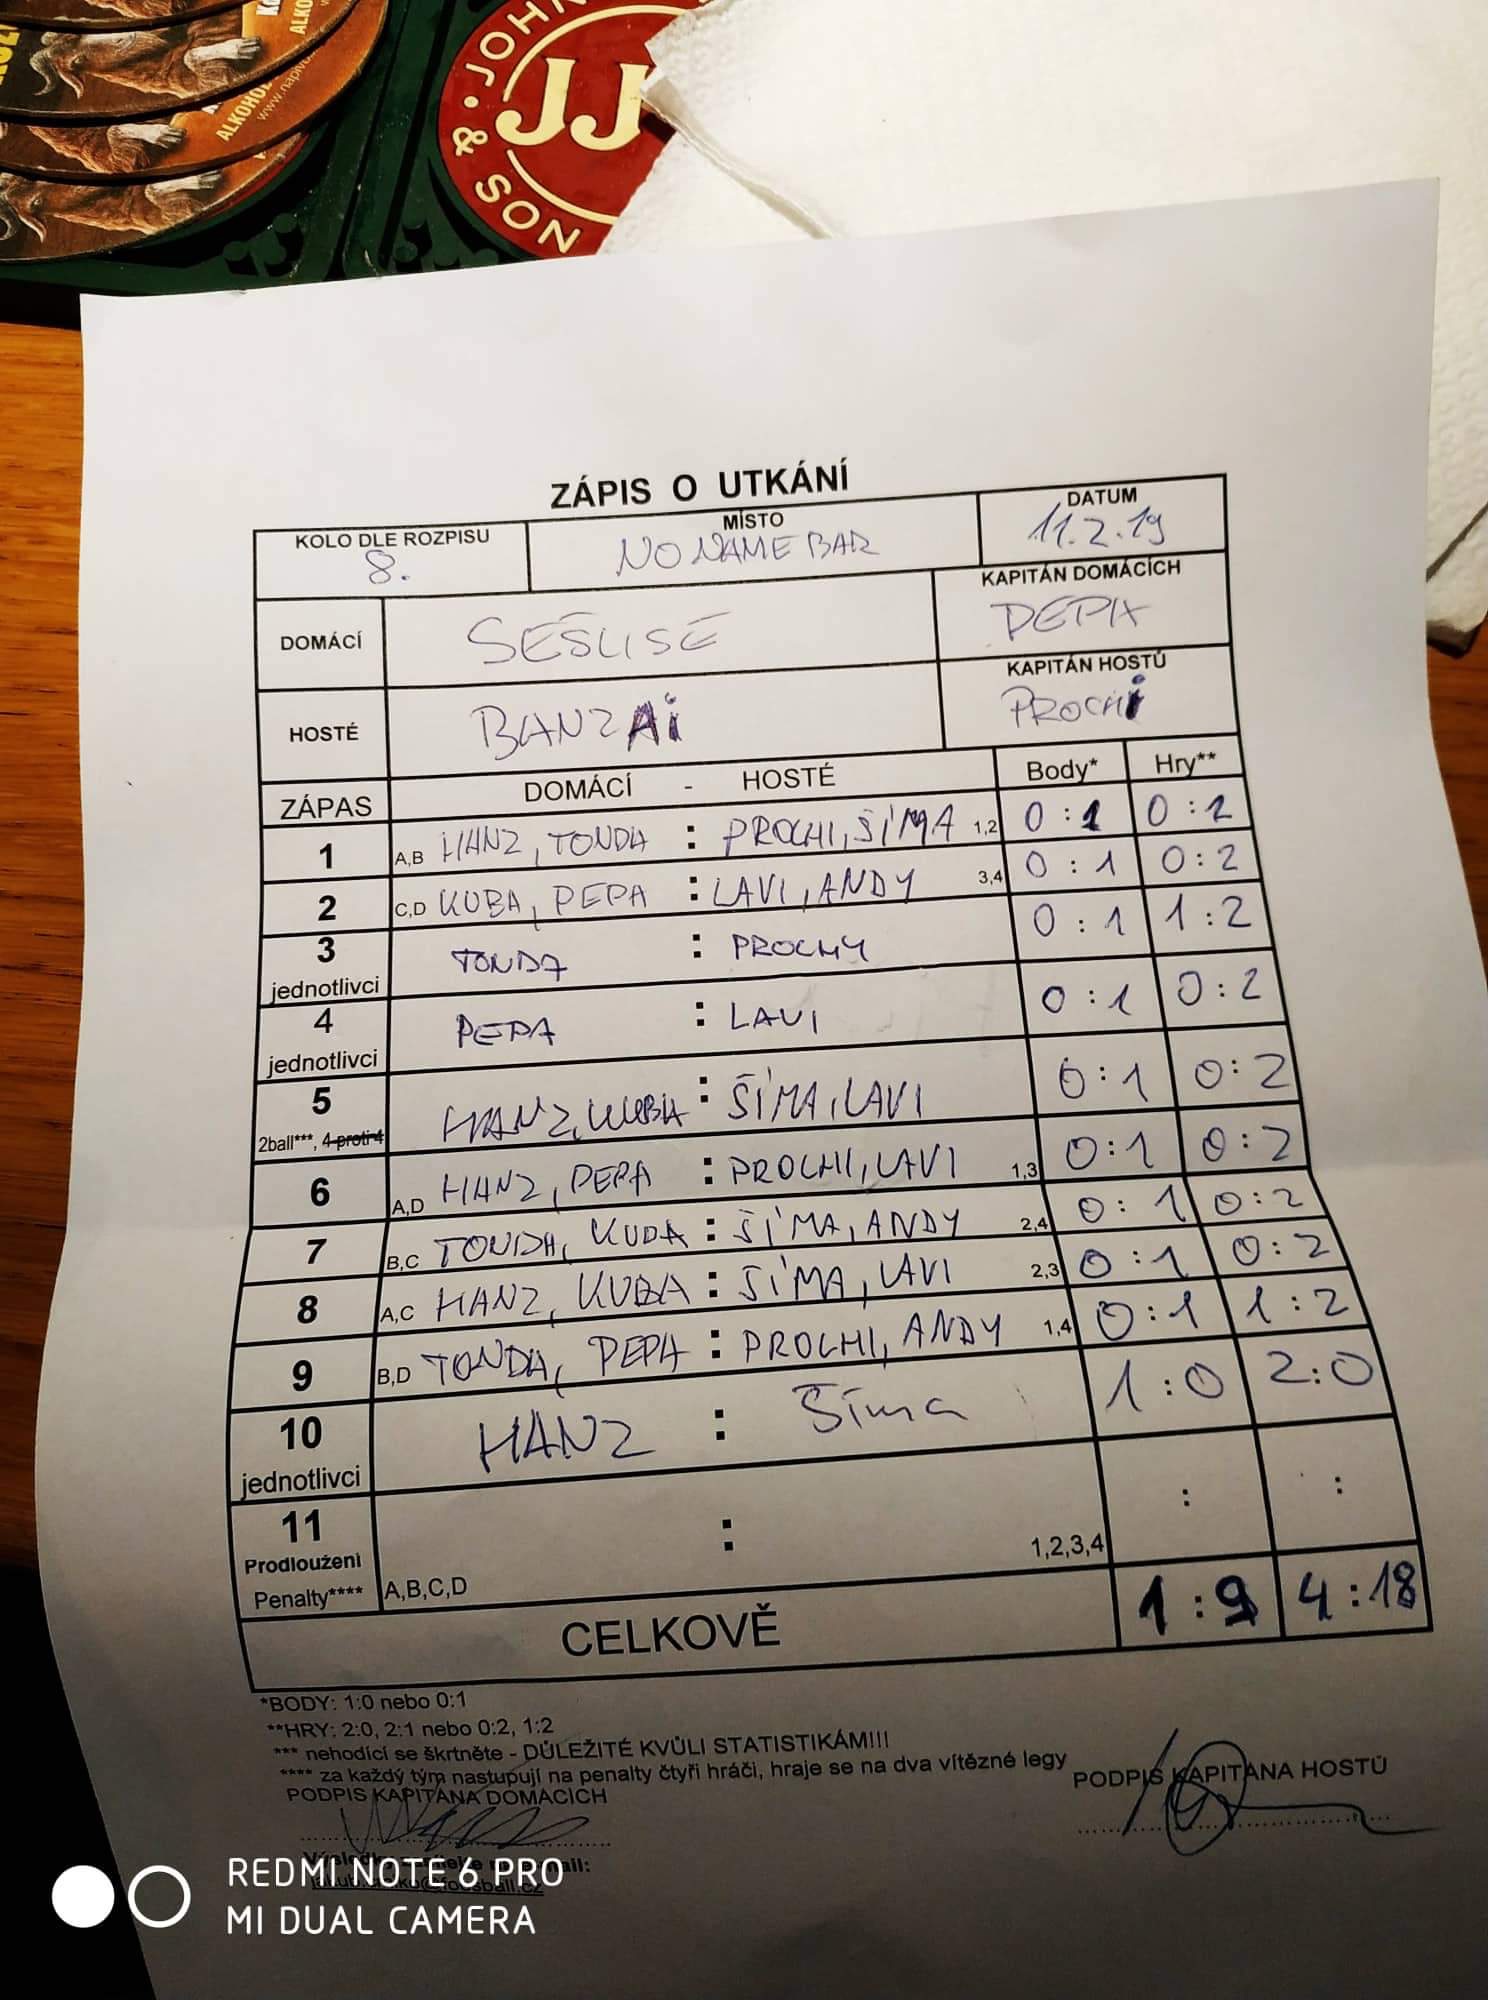 ALKOHOL
www.napivo
· JOHN
JJ
& SON
ZÁPIS O UTKÁNÍ
KOLO DLE ROZPISU MÍSTO DATUM
8. NO NAME BAR 11.2.19
DOMÁCÍ SEŠLISE KAPITÁN DOMÁCÍCH PEPA
HOSTÉ BANZAi KAPITÁN HOSTŮ PROCHi
ZÁPAS DOMÁCÍ - HOSTÉ Body* Hry**
1 A,B HANZ, TONDA : PROCHI, ŠÍMA 1,2 0:1 0:2
2 C,D KUBA, PEPA : LAVI, ANDY 3,4 0:1 0:2
3 jednotlivci TONDA : PROCHY 0:1 1:2
4 jednotlivci PEPA : LAVI 0:1 0:2
5 2ball***, 4 proti 4 HANZ, KUBA : ŠÍMA, LAVI 0:1 0:2
6 A,D HANZ, PEPA : PROCHI, LAVI 1,3 0:1 0:2
7 B,C TONDA, KUBA : ŠÍMA, ANDY 2,4 0:1 0:2
8 A,C HANZ, KUBA : ŠÍMA, LAVI 2,3 0:1 0:2
9 B,D TONDA, PEPA : PROCHI, ANDY 1,4 0:1 1:2
10 jednotlivci HANZ : Šíma 1:0 2:0
11 Prodloužení Penalty**** A,B,C,D : 1,2,3,4 : :
CELKOVĚ 1:9 4:18
*BODY: 1:0 nebo 0:1
**HRY: 2:0, 2:1 nebo 0:2, 1:2
*** nehodící se škrtněte - DŮLEŽITÉ KVŮLI STATISTIKÁM!!!
**** za každý tým nastupují na penalty čtyři hráči, hraje se na dva vítězné legy
PODPIS KAPITÁNA DOMÁCÍCH PODPIS KAPITÁNA HOSTŮ
REDMI NOTE 6 PRO
MI DUAL CAMERA